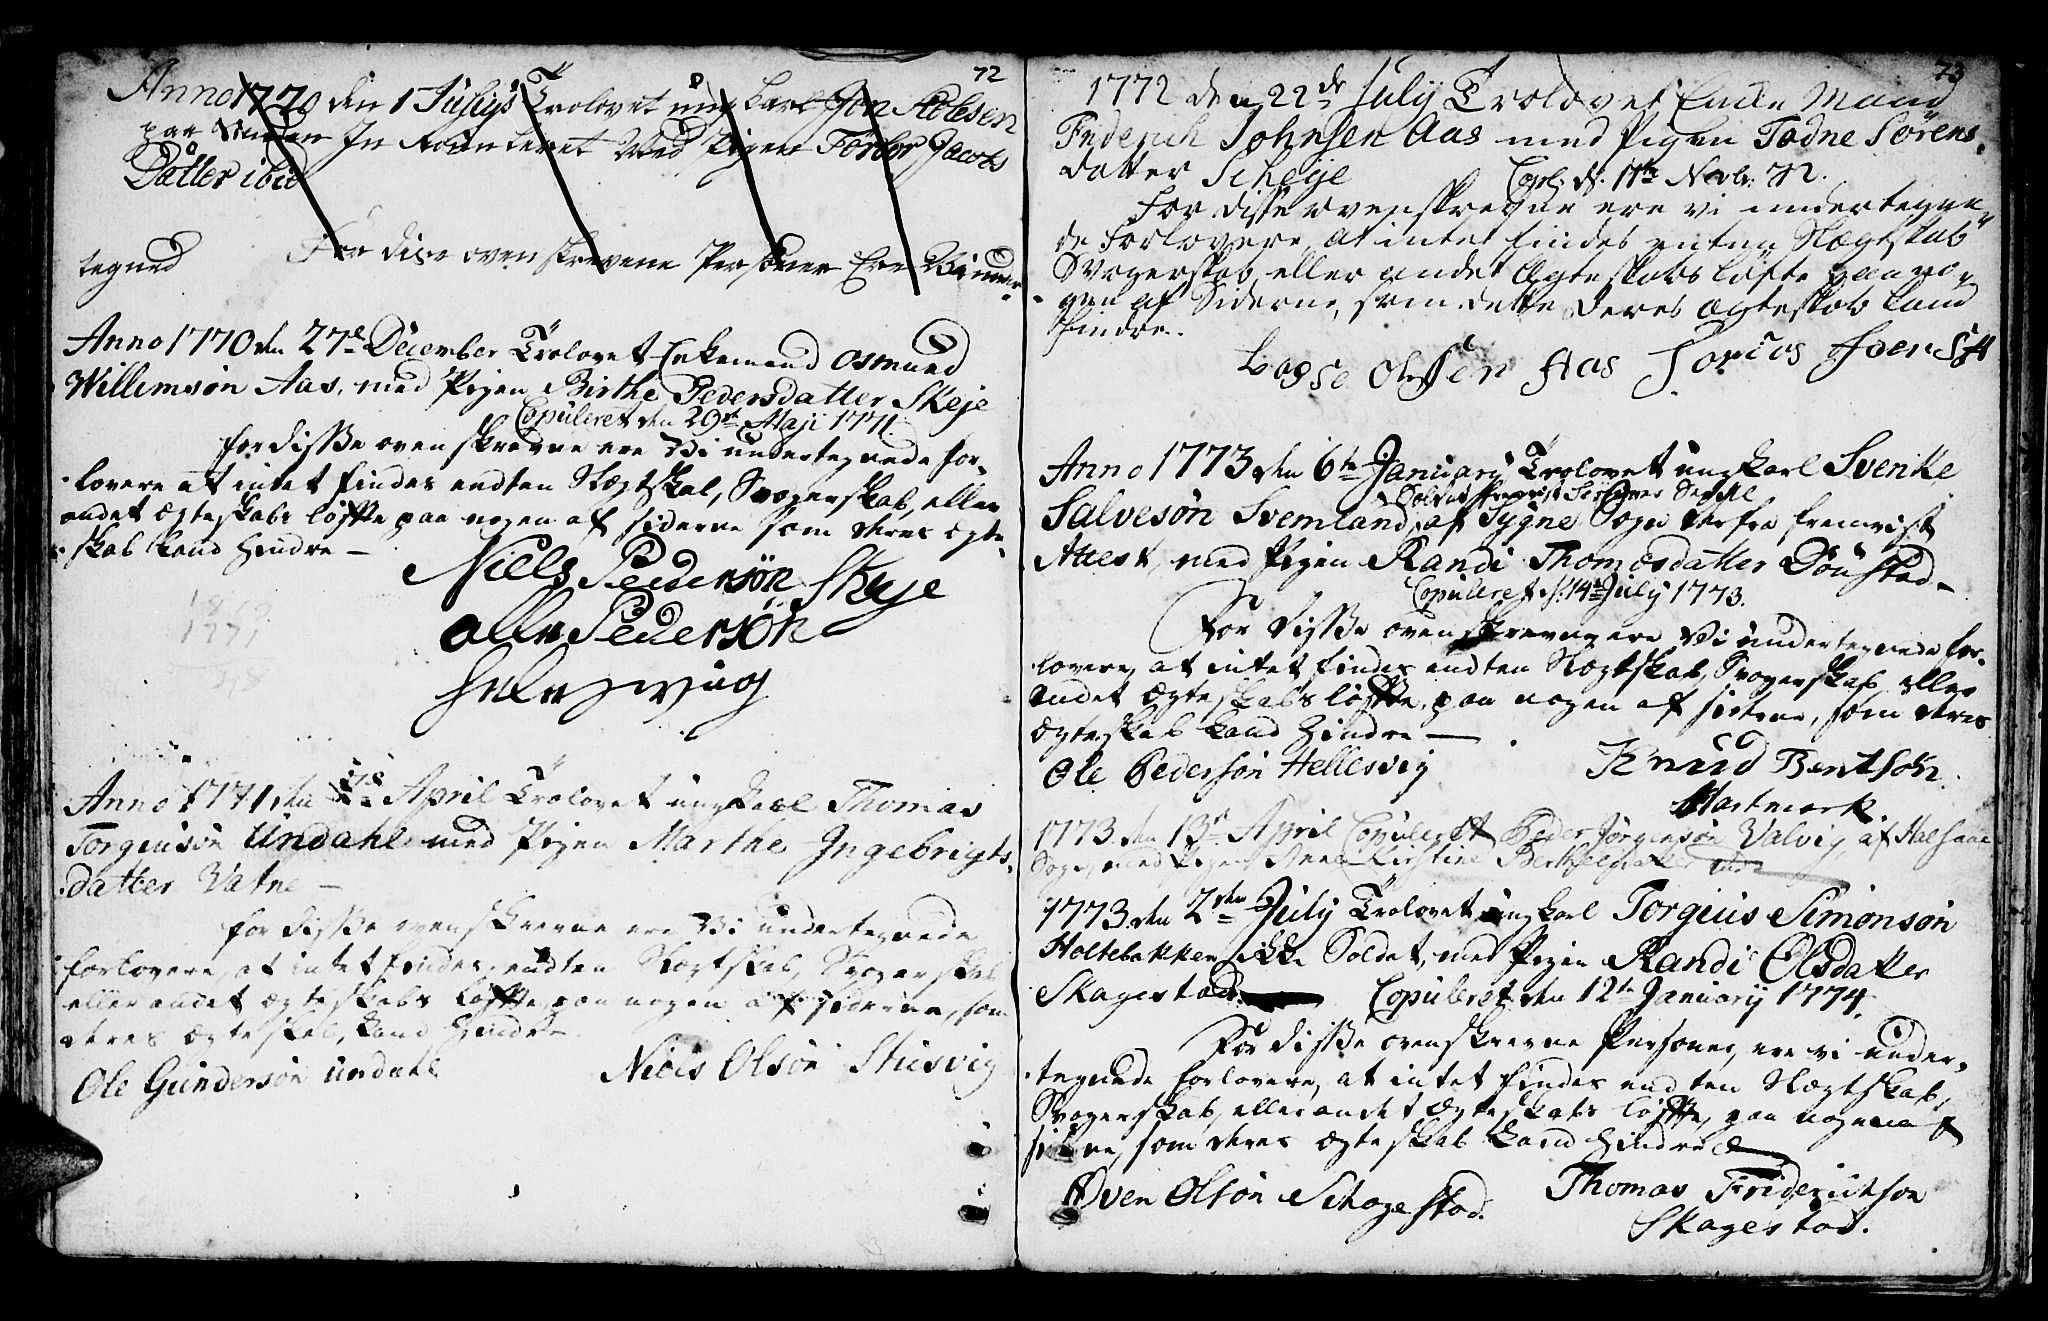 72
Anno 1770 den 1 Julÿ Trolovet ung karl Jon
paa Med Pigen Torbor Jacobs
Datter ibid
For dise ovenskrevene Personer Ere Vi under-
tegned
Anno 1770 den 27de December Trolovet Enkemand Osmund
Willemsøn Aas, med Pigen Birthe Pedersdatter Skeje
Copuleret den 29de Maji 1771.
for disse ovenskrevne ere Vi undertegnede for-
lovere at intet findes endten Slægtskab, Svogerskab, eller
andet Ægteskabs løfte paa nogen af siderne som deres Ægte-
skab kand hindre —
Niels Pedersøn Skeje
Olle Pedersøn
Helesvig
Anno 1771 den April Trolovet ungkarl Thomas
Torgiusøn Undahl med Pigen Marthe Ingebrigts-
datter Vatne —
for disse ovenskrevne ere Vi undertegnede
forlovere, at intet findes, endten Slægtskab, Svogerskab
eller andet Ægteskabs løfte, paa nogen af siderne, som
deres Ægteskab, kand hindre —
Ole Gundersøn Undahl Niels Olsøn Stusvig
73
1772 den 22de July Trolovet Enke Mand
Frederich Johnsen Aas med Pigen Todne Sørens-
datter Scheije Copl: d. 11te Novbr: 72.
For disse ovenskrevne ere vi undertegne-
de Forlovere, at intet findes enten Slægtskab
Svogerskab eller andet Ægteskabs løfte paa no-
gen af Siderne, som dette Deres Ægteskab kand
hindre.
Lasse Olssen Aas
Anno 1773 den 6te January Trolovet ungkarl Svenke
Salvesøn Svemland, af Sygne Sogn derfra fremvist
Attest, med Pigen Randi Thomæsdatter Dønstad —
Copuleret d. 14de July 1773.
For disse ovenskrevne ere Vi undertegnede for-
lovere, at intet findes endten Slægtskab, Svogerskab eller
andet Ægteskabs løfte, paa nogen af siderne, som deres
Ægteskab kand hindre —
Ole Pedersøn Hellesvig Knud Bentsøn
Hartmark
1773 den 13de April Copuleret Peder Jørgensøn Valvig af Halsaae
Sogn, med Pigen Anne Kirstine
1773 den 2den July Trolovet ungkarl Torgius Simonsøn
Holtebakken ikke Soldat, med Pigen Randi Olsdatter
Skagestad. Copuleret den 12te January 1774.
For disse ovenskrevne Personer, ere vi under-
tegnede forlovere, at intet findes endten Slægtskab,
Svogerskab, eller andet Ægteskabs løfte, paa nogen af
siderne, som deres Ægteskab kand hindre
Øven Olsøn Schagestad. Thomas Friderichson
Skagestad.